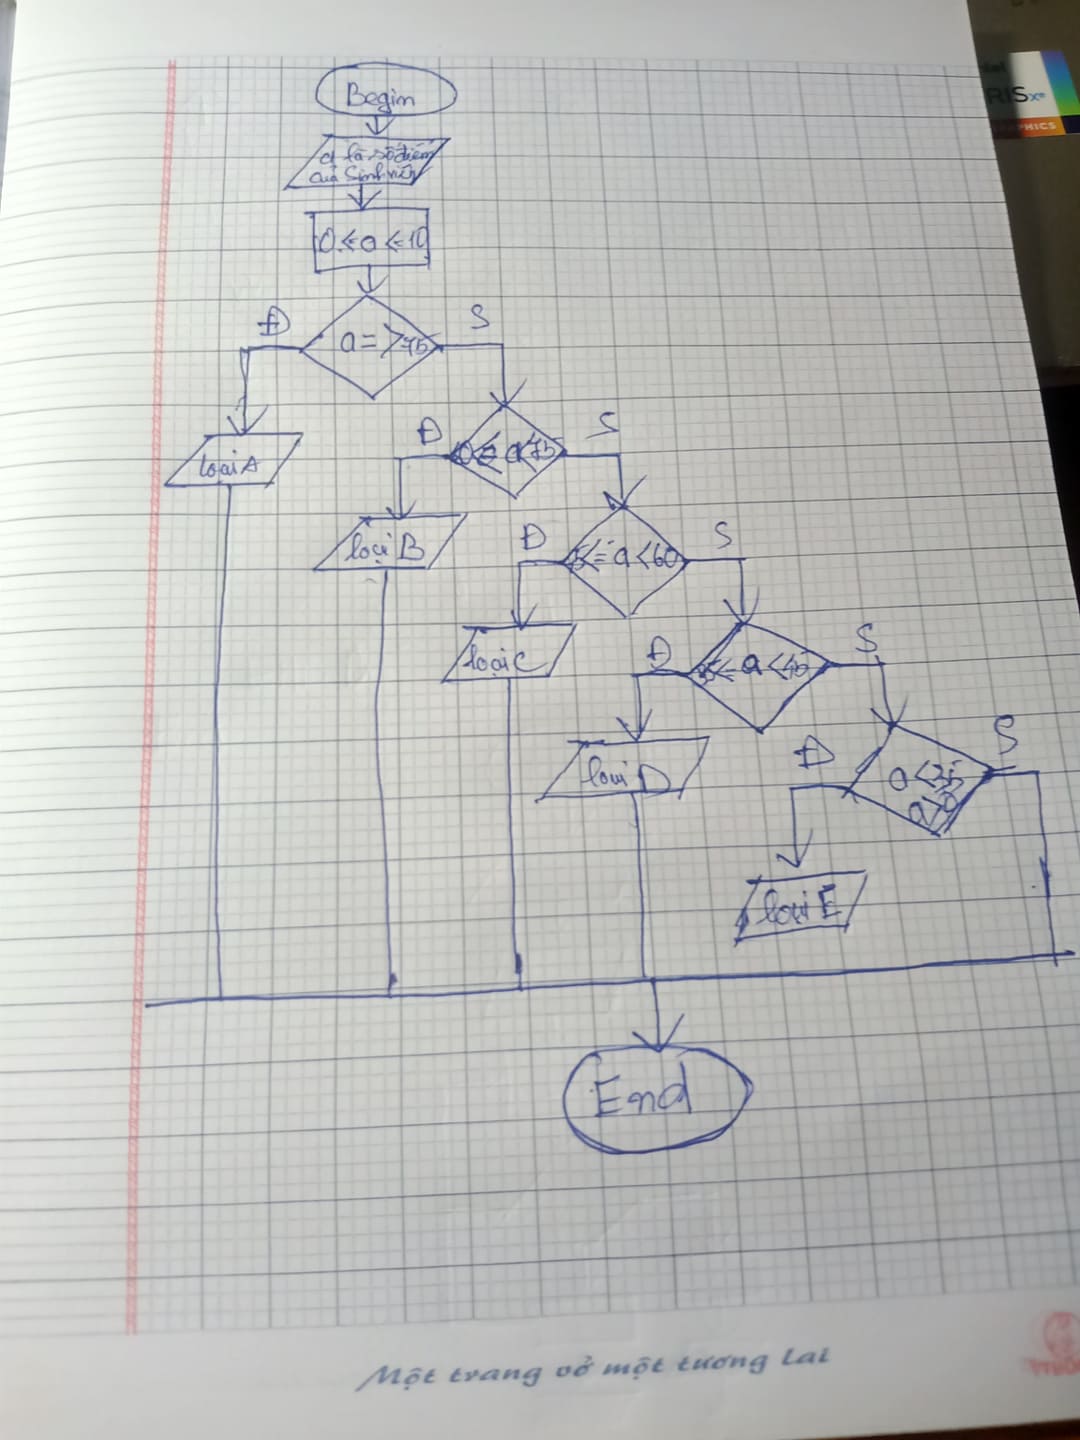 Begin
a là số điểm
của Sinh viên
0 <= a <= 10
Đ
S
a = > 75
loại A
Đ
S
a < 75
loại B
Đ
S
<= a < 60
loại C
Đ
S
35 <= a <
loại D
Đ
S
a < 35
loại E
End
Một trang vở một tương lai
RIS xe
PHICS